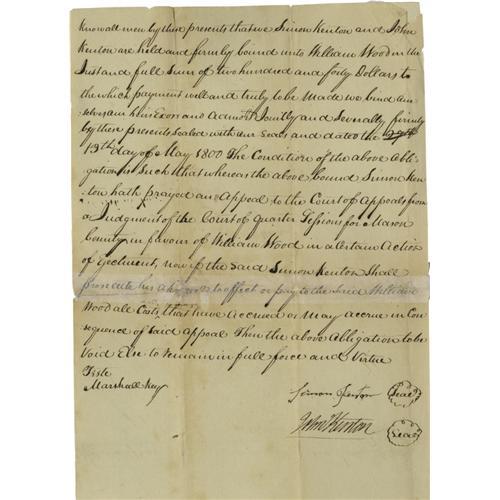 Know all men by these presents that we Simon Kenton and John
Kenton are held and firmly bound unto William Wood in the
Just and full Sum of two hundred and forty Dollars to
the which payment well and truly to be Made we bind our
selves our heirs Exors and Admors Jointly and Severally firmly
by these presents Sealed with our Seals and dated the
13th day of May 1800 The Condition of the above Obli-
gation is Such that whereas the above bound Simon Ken-
ton hath prayed an Appeal to the Court of Appeals from
a Judgment of the Court of Quarter Sessions for Mason
County in favour of William Wood in a Certain Action
of Ejectment, now if the said Simon Kenton Shall
prosecute his to effect or pay to the said William
Wood all Costs that have Accrued or May accrue in Con
sequence of said Appeal Then the above Obligation to be
Void Else to remain in full force and Virtue
Teste
Marshall Key
Simon Kenton Seal
John Kenton Seal